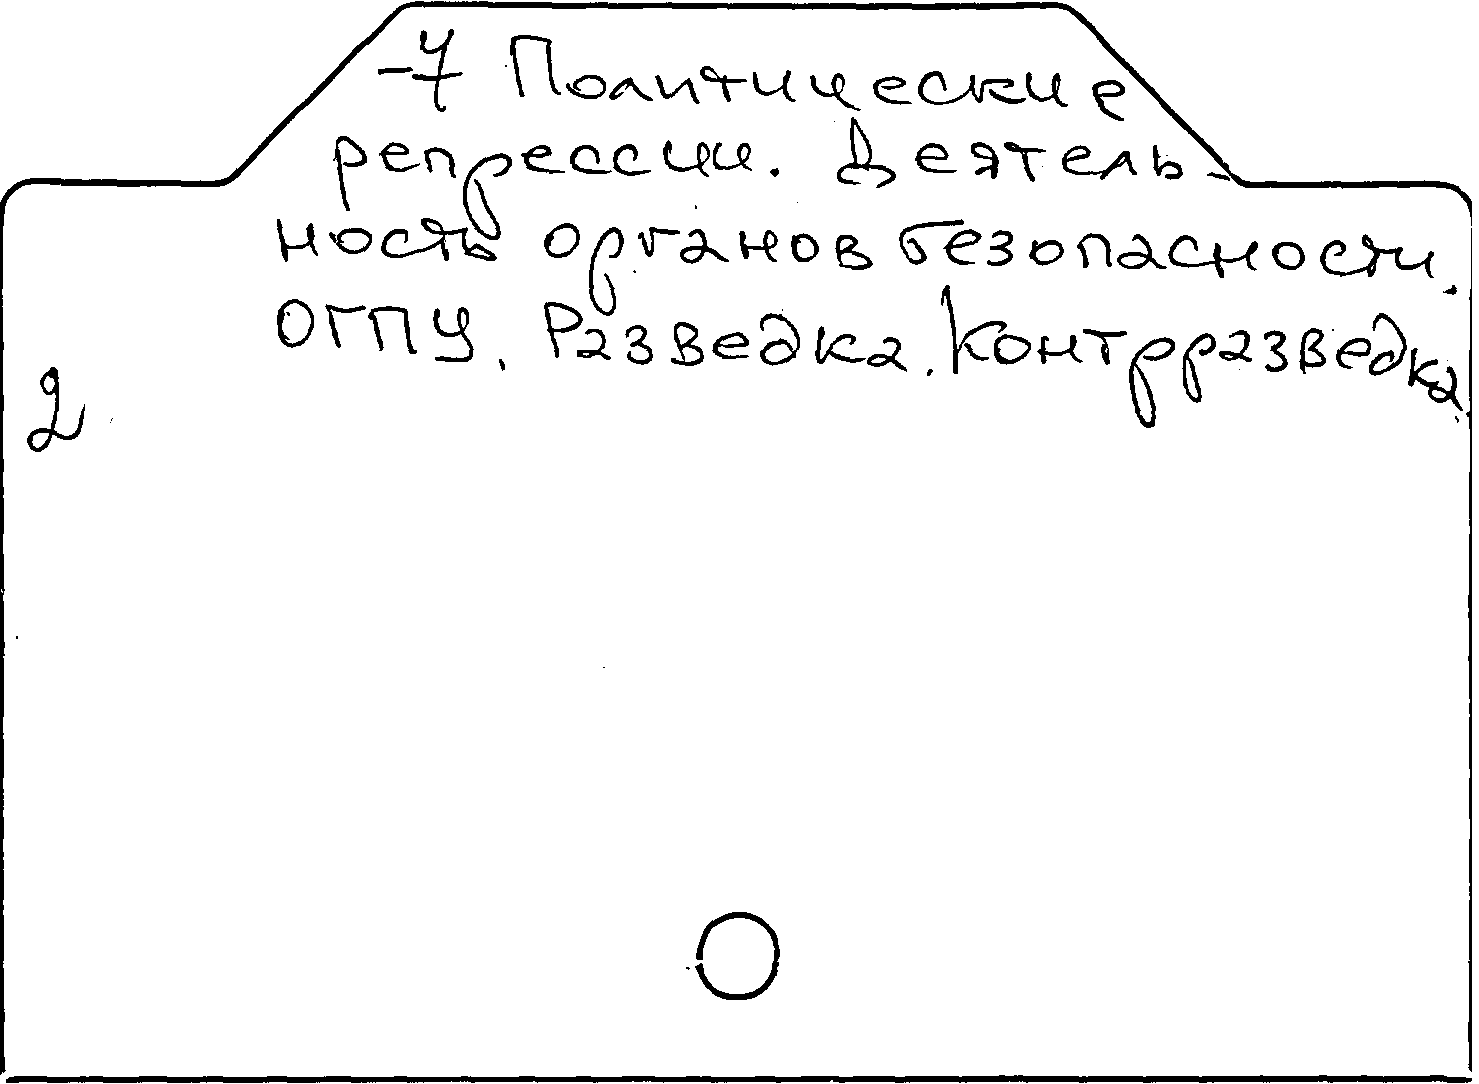 -7 Политические
репрессии. Деятель-
ность органов безопасности.
ОГПУ. Разведка. Контрразведка.
2